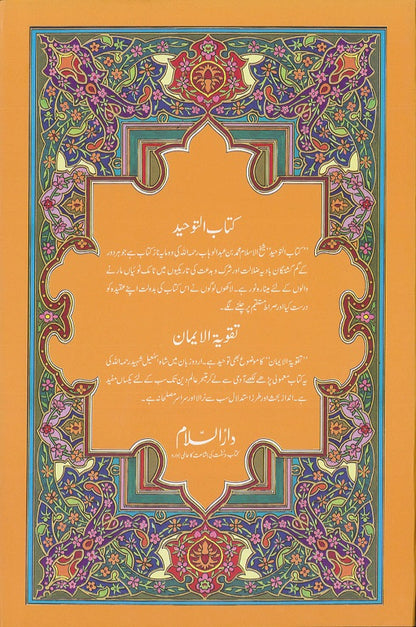 کتاب التوحید
"کتاب التوحید" شیخ الاسلام محمد بن عبدالوہاب رحمہ اللہ کی وہ مایہ ناز کتاب ہے جو ہر دور
کے گم گشتگان بادیہ ضلالت اور شرک و بدعت کی تاریکیوں میں ٹامک ٹوئیاں مارنے
والوں کے لئے مینارہ نور ہے۔ لاکھوں لوگوں نے اس کتاب کی بدولت اپنے عقیدہ کو
درست کیا اور صراط مستقیم پر چلنے لگے۔
تقویۃ الایمان
"تقویۃ الایمان" کا موضوع بھی توحید ہے۔ اردو زبان میں شاہ اسمٰعیل شہید رحمہ اللہ کی
یہ کتاب معمولی پڑھے لکھے آدمی سے لے کر متبحر عالم دین تک سب کے لئے یکساں مفید
ہے۔ انداز بحث اور طرز استدلال سب سے نرالا اور سراسر مصلحانہ ہے۔
دارالسلام
کتاب و سنت کی اشاعت کا عالمی ادارہ